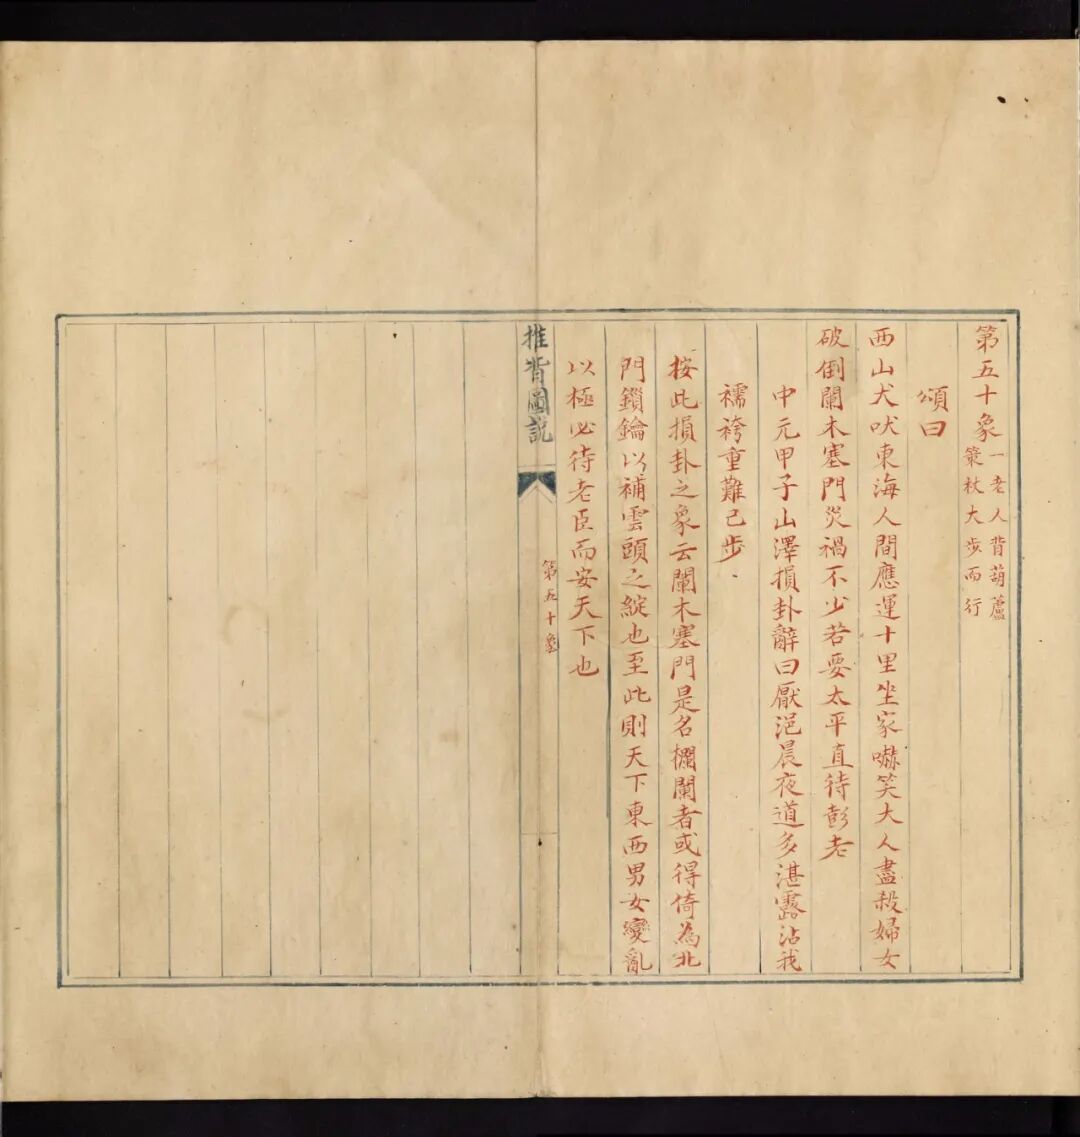 第五十象
一老人背葫蘆
策杖大步而行
頌曰
西山犬吠東海人間應運十里坐家嚇笑大人盡殺婦女
破倒闌木塞門災禍不少若要太平直待彭老
中元甲子山澤損卦辭曰厭浥晨夜道多湛露沾我
襦袴重難已步
按此損卦之象云闌木塞門是名欄闌者或得倚為北
門鎖鑰以補雲頭之綻也至此則天下東西男女變亂
以極必待老臣而安天下也
推背圖説
第五十象